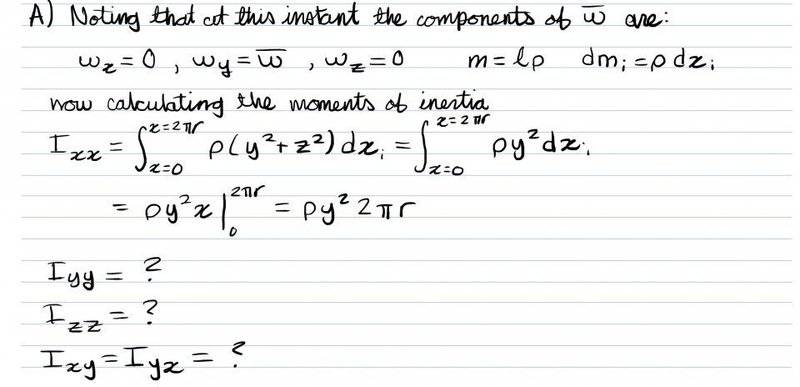 A) Noting that at this instant the components of ω̅ are:
ωx = 0 , ωy = ω̅ , ωz = 0 m = lρ dmᵢ = ρ dxᵢ
now calculating the moments of inertia
Ixx = ∫_{x=0}^{x=2πr} ρ(y² + z²) dxᵢ = ∫_{x=0}^{x=2πr} ρy² dxᵢ
= ρy²x |_0^{2πr} = ρy² 2πr
Iyy = ?
Izz = ?
Ixy = Iyx = ?